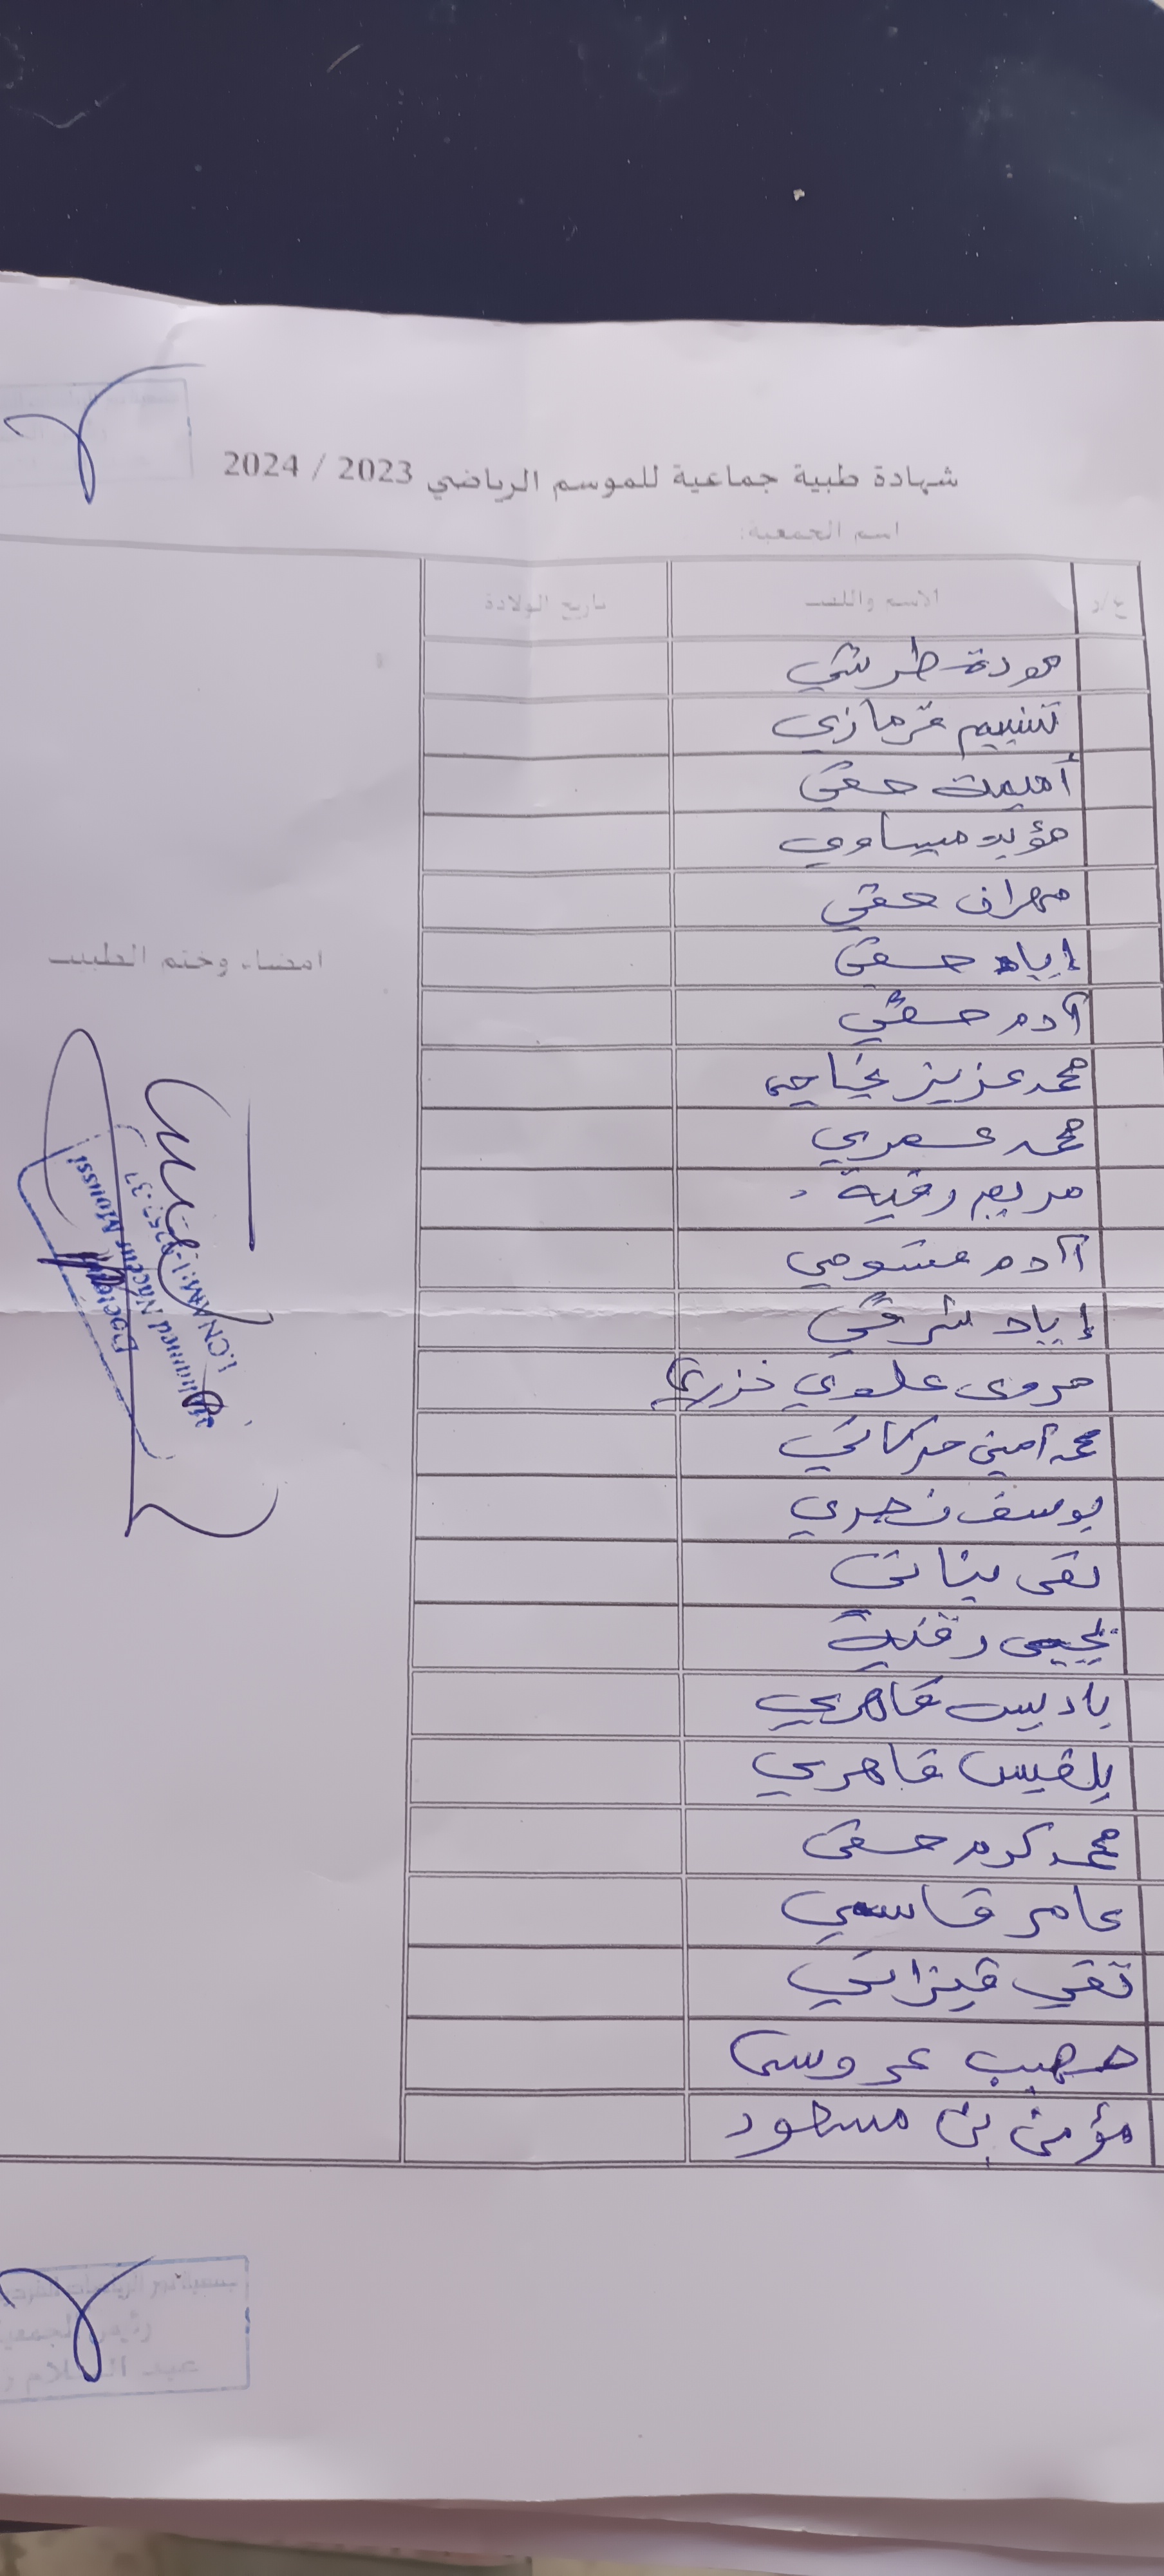 شهادة طبية جماعية للموسم الرياضي 2023 / 2024
اسم الجمعية:
ع/ر الاسم واللقب تاريخ الولادة
مودة طرشي
تسنيم قرمازي
أميمة حقي
مؤيد ميساوي
مهران حقي
إياد حقي
آدم حقي
محمد عزيز
محمد عمري
مريم رقية
آدم
إياد شرقي
مروى علوي
محمد أمين حركاتي
يوسف نصري
تقى بناني
يحيى رقية
باديس قاهري
بلقيس قاهري
محمد كرم حقي
عامر قاسمي
تقي قيزاني
صهيب عروسي
مؤمن بن مسعود
امضاء وختم الطبيب
Docteur
Mohamed Naceur Moussi